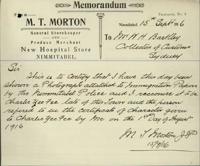 Memorandum
M. T. MORTON
General Storekeeper
AND
Produce Merchant
New Hospital Store
NIMMITABEL
Nimmitabel 15th Sept 1916
To Mr W. H. Barkley
Collector of Customs
Sydney
Sir
This is to Certify that I have this day been
shown a Photograph attached to Immigration Papers
by the Nimmitabel Police and I recognise it as
Charley Gee Fee late of this Town and the person
referred to in the Certificate of Character given
to Charley Gee Fee by me on the 1st Day of August
1916
M T Morton J.P.
15/9/16